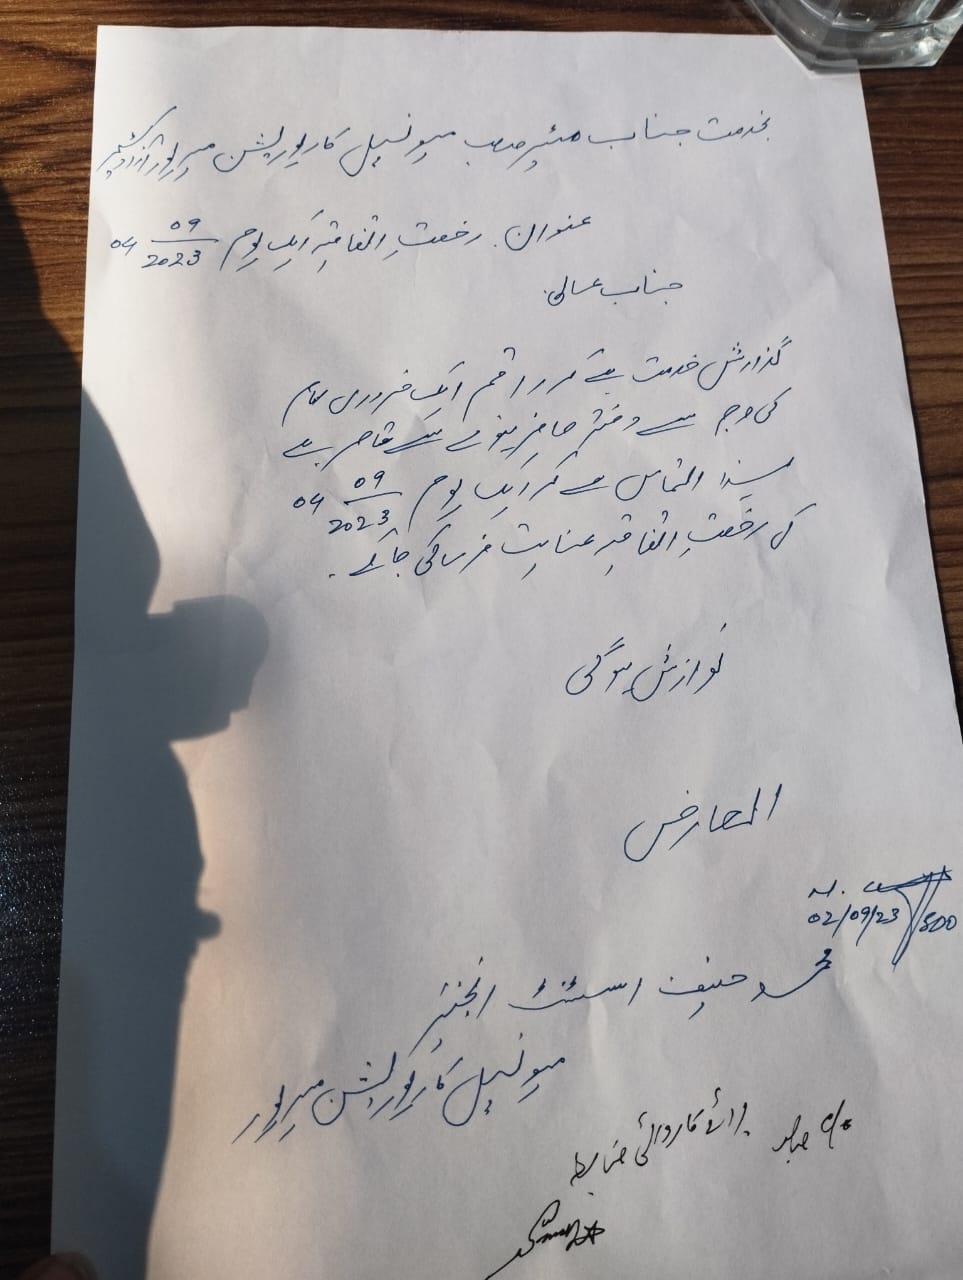 بخدمت جناب مئیر صاحب میونسپل کارپوریشن میرپور آزاد کشمیر
عنوان. رخصتِ اتفاقیہ ایک یوم 04 09/2023
جناب عالی.
گذارش خدمت ہے کہ راقم ایک ضروری کام
کی وجہ سے دفتر حاضر ہونے سے قاصر ہے
لہذا التماس ہے کہ ایک یوم 04 09/2023
کی رخصتِ اتفاقیہ عنایت فرمائی جائے.
نوازش ہوگی
العارض
02/09/23 SDO
محمد حنیف اسسٹنٹ انجنیئر
میونسپل کارپوریشن میرپور
برائے کاروائی ضابطہ